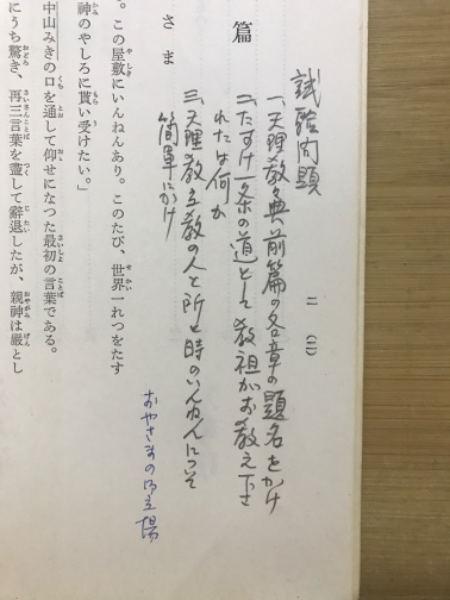 二(二)
試験問題
一、天理教々典前篇の各章の題名をかけ
二、たすけ一条の道として教祖がお教え下さ
れたは何か
三、天理教立教の人と所と時のいんねんについて
簡單にかけ
おやさまの御立場
篇
さま
。この屋敷にいんねんあり。このたび、世界一れつをたす
神のやしろに貰い受けたい。」
中山みきの口を通して仰せになつた最初の言葉である。
にうち驚き、再三言葉を盡して辭退したが、親神は厳とし